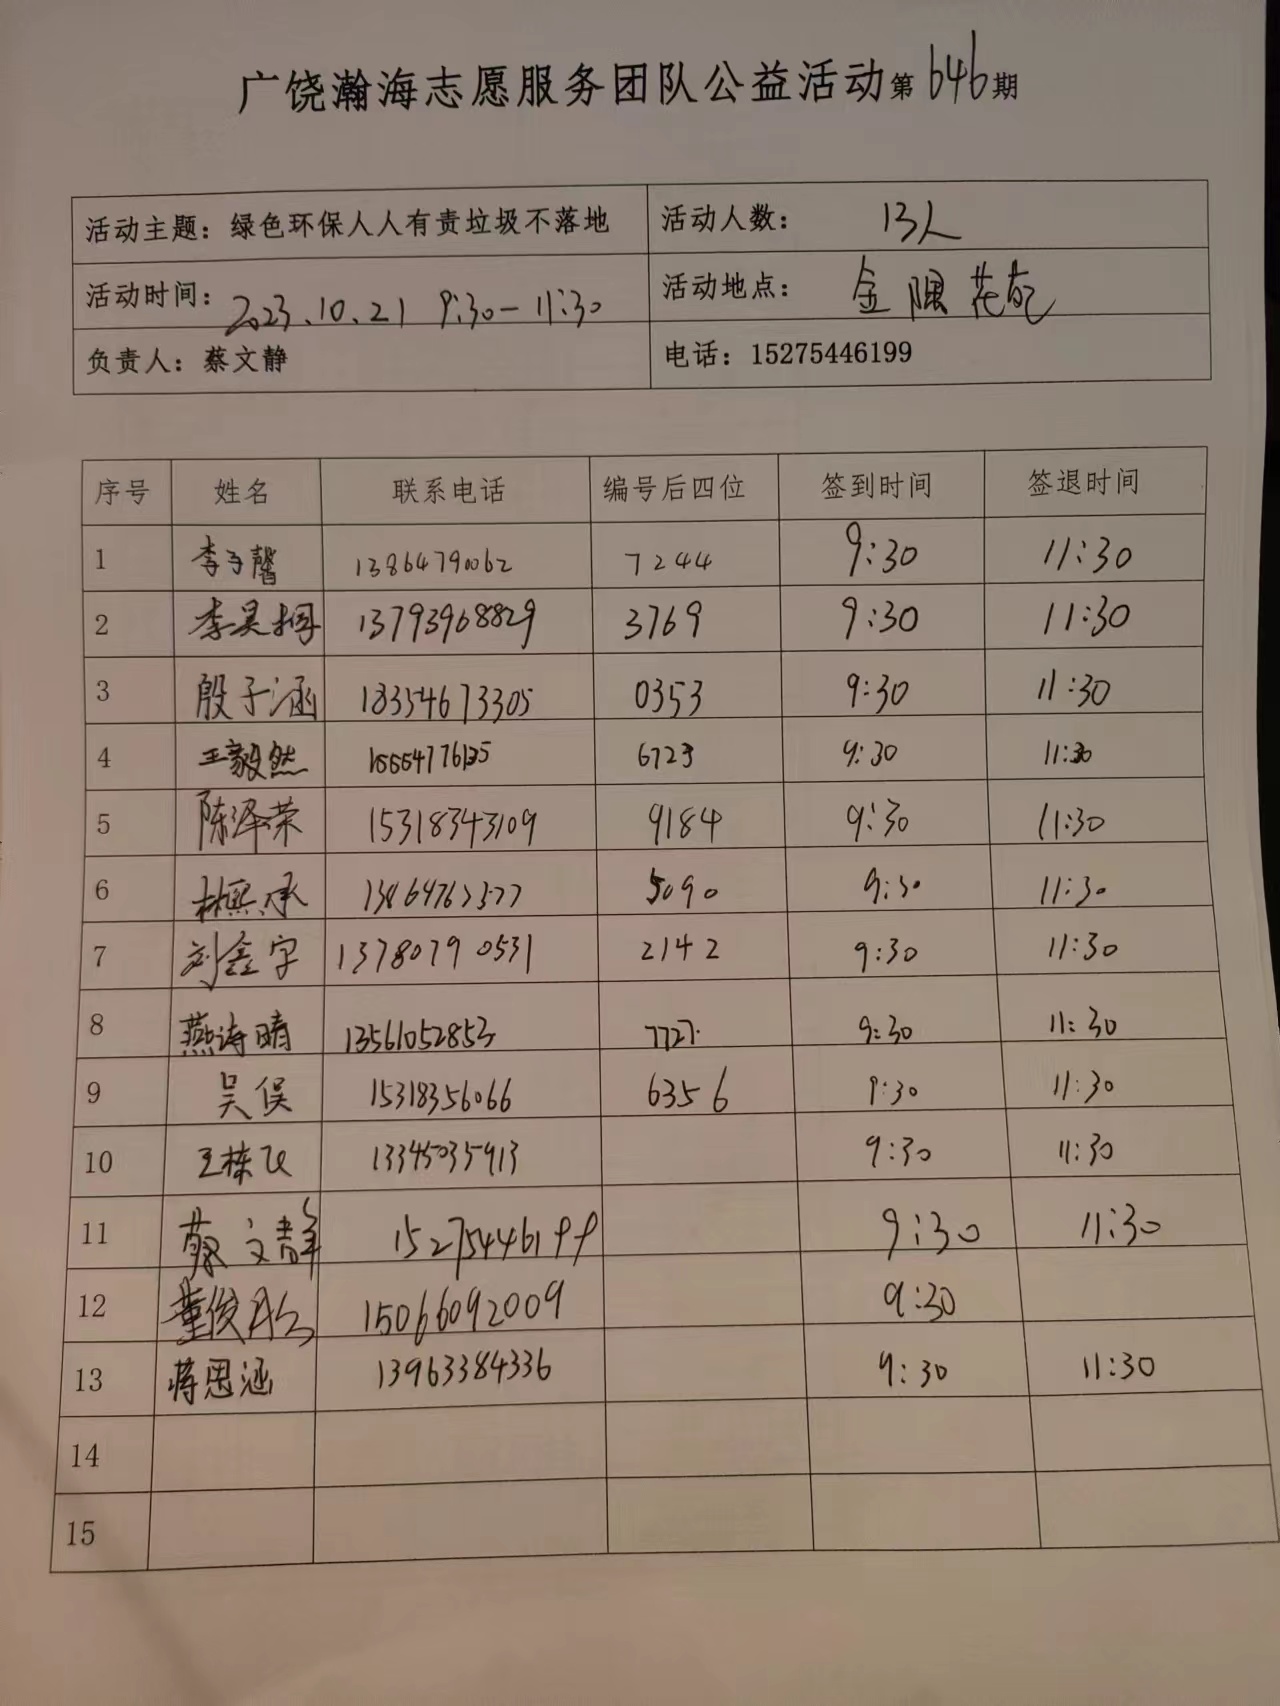 广饶瀚海志愿服务团队公益活动第646期
活动主题：绿色环保人人有责垃圾不落地 活动人数： 13人
活动时间：2023.10.21 9:30-11:30 活动地点： 金隅花苑
负责人：蔡文静 电话：15275446199
序号 姓名 联系电话 编号后四位 签到时间 签退时间
1 李子馨 13864790062 7244 9:30 11:30
2 李昊桐 13793968829 3769 9:30 11:30
3 殷子涵 18354673305 0353 9:30 11:30
4 王毅然 6723 9:30 11:30
5 陈泽荣 15318343109 9184 9:30 11:30
6 林熙承 5090 9:30 11:30
7 刘鑫宇 13780790531 2142 9:30 11:30
8 燕诗晴 13561052853 7727 9:30 11:30
9 吴俣 15318356066 6356 9:30 11:30
10 王栋飞 13345035913 9:30 11:30
11 蔡文静 15275446199 9:30 11:30
12 董俊 15066092009 9:30
13 蒋思涵 13963384336 9:30 11:30
14
15